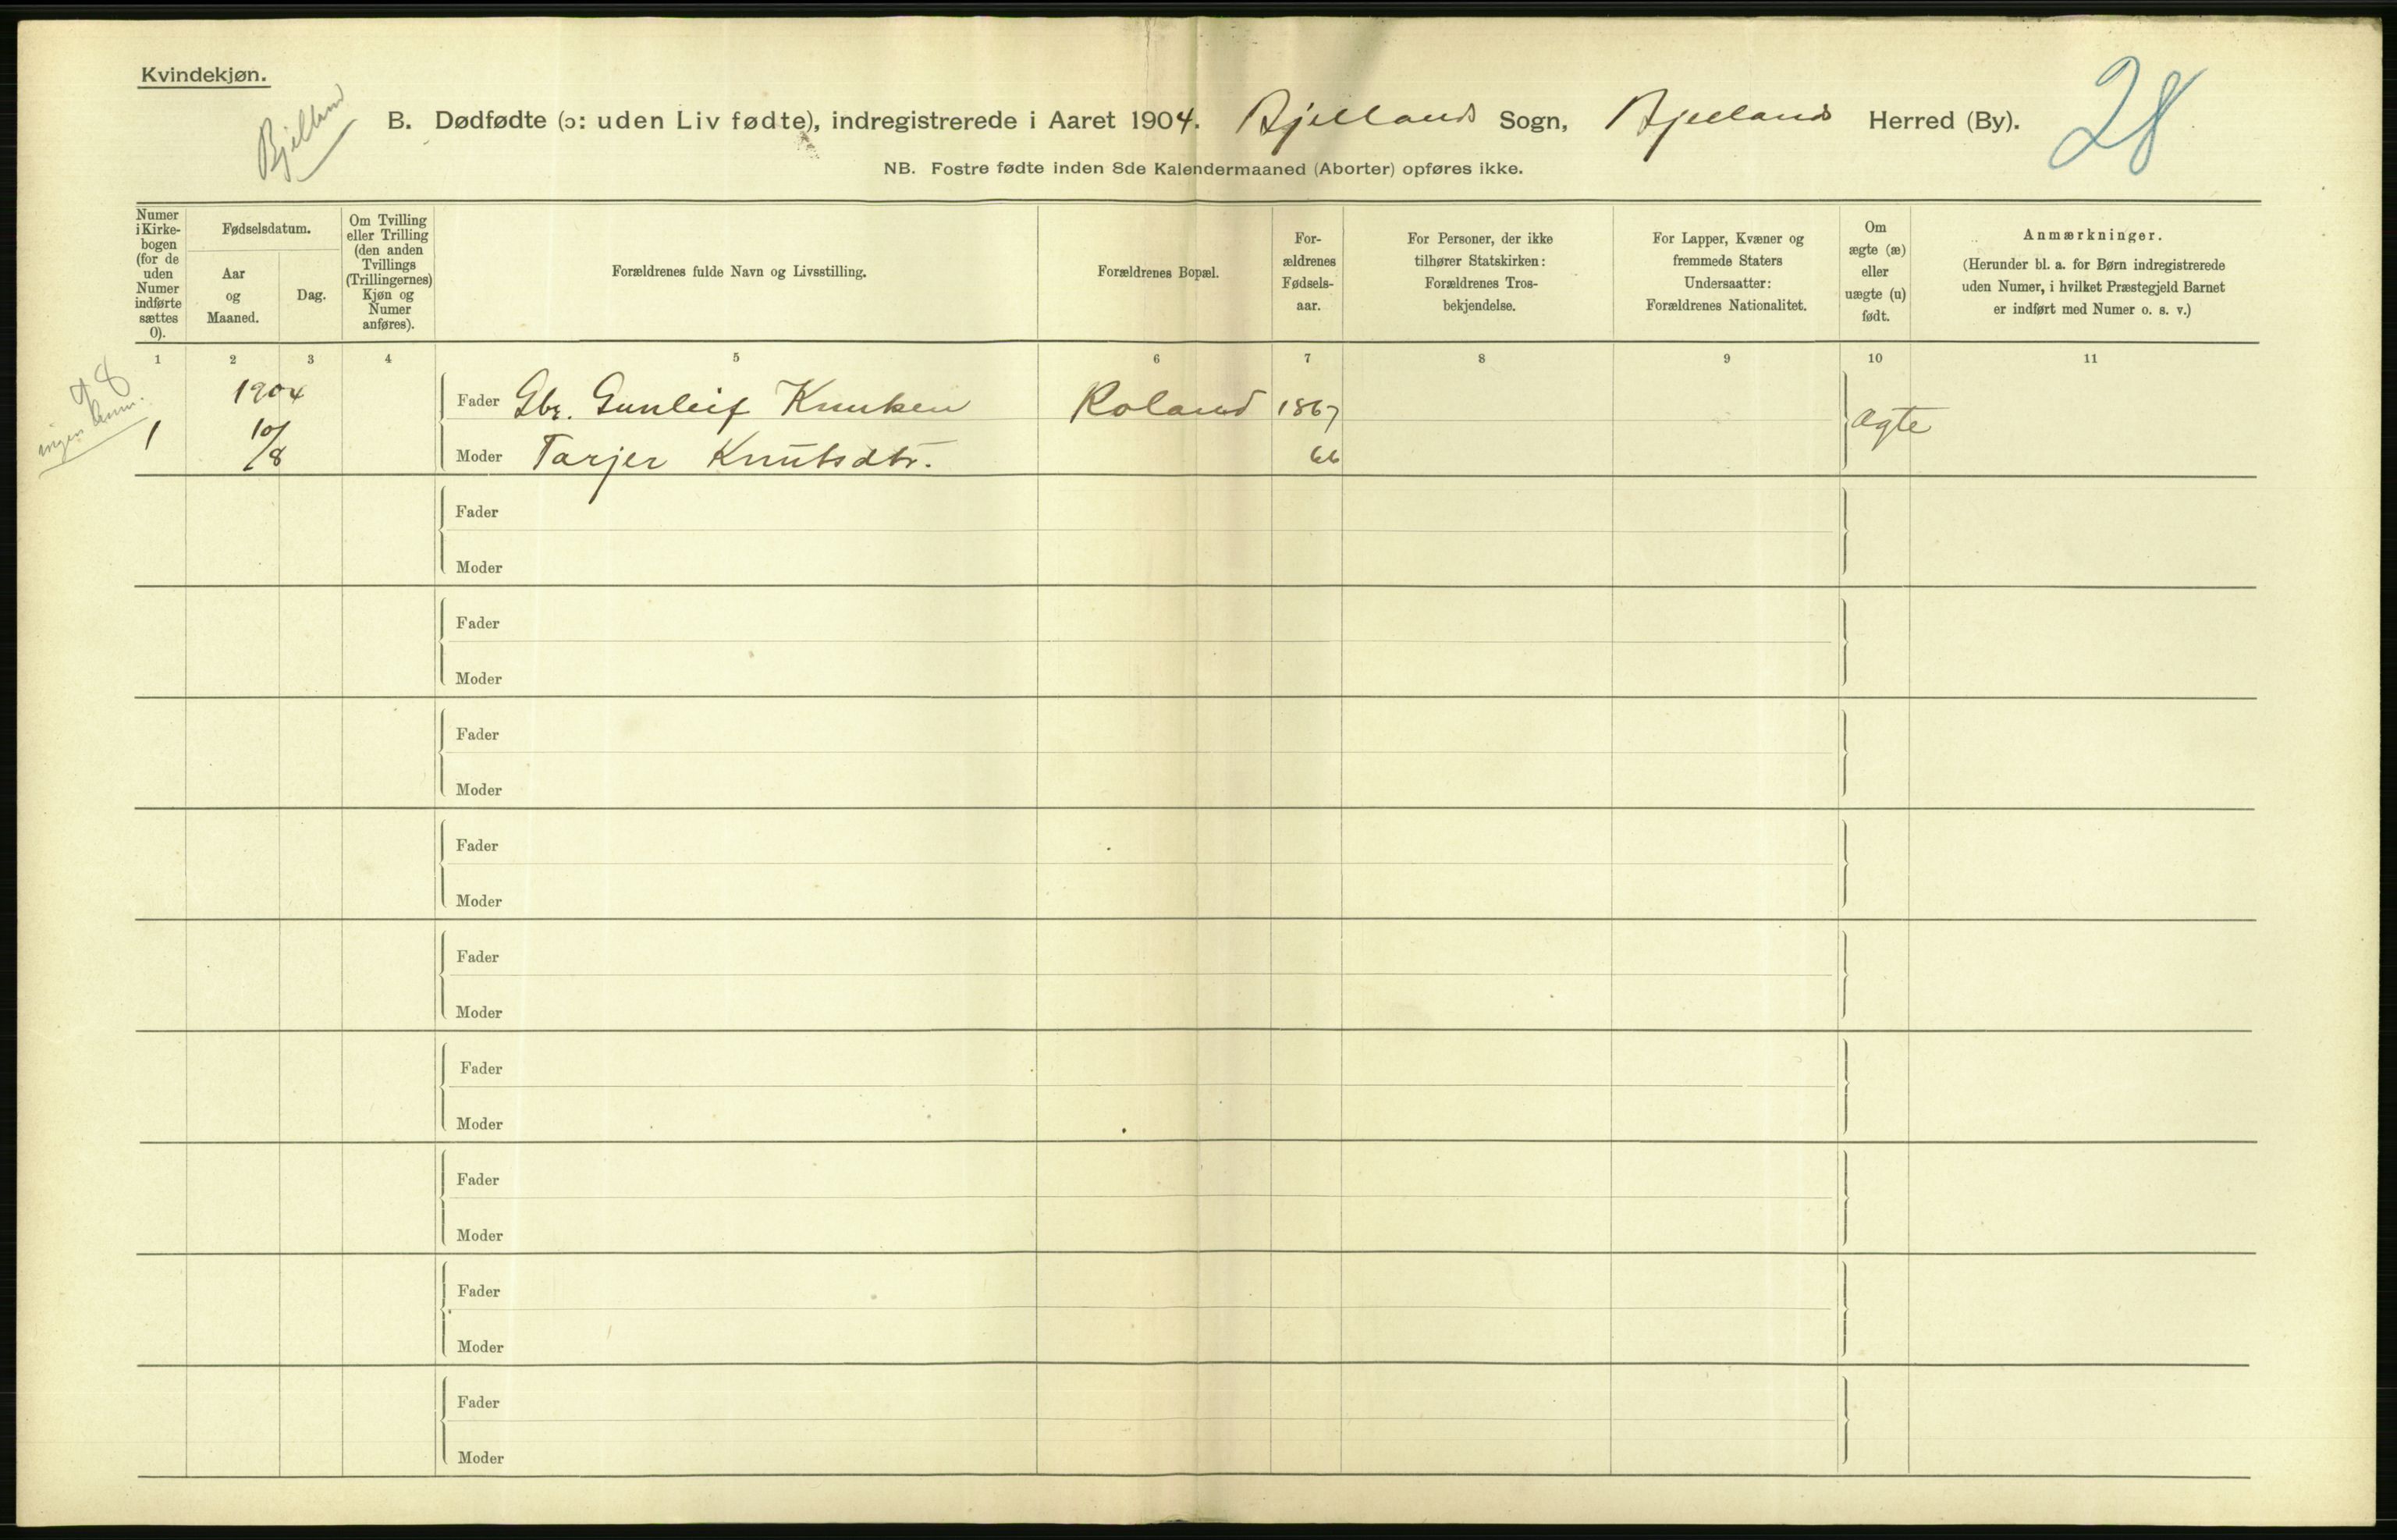 Kvindekjøn.
Bjelland
28
B. Dødfødte (ɔ: uden Liv fødte), indregistrerede i Aaret 1904. Bjellands Sogn, Bjellands Herred (By).
NB. Fostre fødte inden 8de Kalendermaaned (Aborter) opføres ikke.
Numer i Kirke-bogen (for de uden Numer indførte sættes 0).
Fødselsdatum.
Aar og Maaned.
Dag.
Om Tvilling eller Trilling (den anden Tvillings (Trillingernes) Kjøn og Numer anføres).
Forældrenes fulde Navn og Livsstilling.
Forældrenes Bopæl.
For-ældrenes Fødsels-aar.
For Personer, der ikke tilhører Statskirken: Forældrenes Tros-bekjendelse.
For Lapper, Kvæner og fremmede Staters Undersaatter: Forældrenes Nationalitet.
Om ægte (æ) eller uægte (u) født.
Anmærkninger.
(Herunder bl. a. for Børn indregistrerede uden Numer, i hvilket Præstegjeld Barnet er indført med Numer o. s. v.)
1 2 3 4 5 6 7 8 9 10 11
ingen
1904
Fader Gbr. Gunleif Knutsen Roland 1867
1 10/8 ægte
Moder Tarjer Knutsdtr. 66
Fader
Moder
Fader
Moder
Fader
Moder
Fader
Moder
Fader
Moder
Fader
Moder
Fader
Moder
Fader
Moder
Fader
Moder